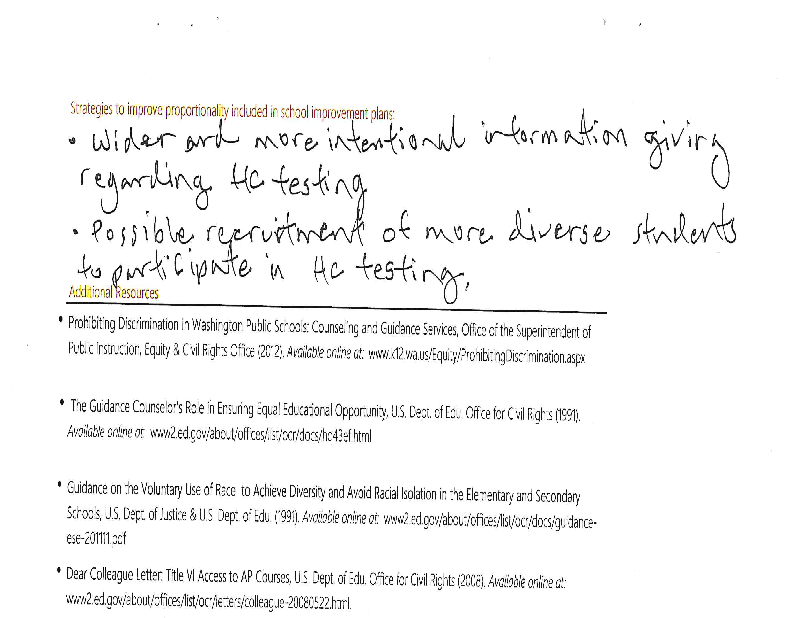 Strategies to improve proportionality included in school improvement plans:
• Wider and more intentional information giving
regarding HC testing
• Possible recruitment of more diverse students
to participate in HC testing.
Additional Resources
• Prohibiting Discrimination in Washington Public Schools: Counseling and Guidance Services, Office of the Superintendent of
Public Instruction, Equity & Civil Rights Office (2012). Available online at: www.k12.wa.us/Equity/ProhibitingDiscrimination.aspx
• The Guidance Counselor's Role in Ensuring Equal Educational Opportunity, U.S. Dept. of Edu. Office for Civil Rights (1991).
Available online at: www2.ed.gov/about/offices/list/ocr/docs/hq43ef.html
• Guidance on the Voluntary Use of Race to Achieve Diversity and Avoid Racial Isolation in the Elementary and Secondary
Schools, U.S. Dept. of Justice & U.S. Dept. of Edu. (1991). Available online at: www2.ed.gov/about/offices/list/ocr/docs/guidance-
ese-201111.pdf
• Dear Colleague Letter: Title VI Access to AP Courses, U.S. Dept. of Edu. Office for Civil Rights (2008). Available online at:
www2.ed.gov/about/offices/list/ocr/letters/colleague-20080522.html.